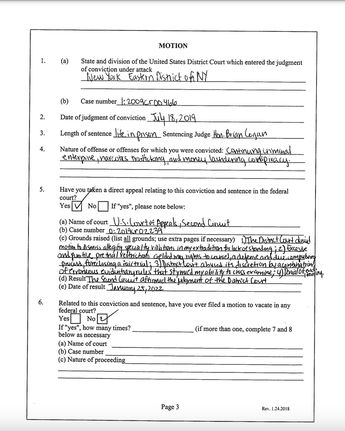 MOTION
1. (a) State and division of the United States District Court which entered the judgment
of conviction under attack
New York Eastern District of NY
(b) Case number 1:2009cr00466
2. Date of judgment of conviction July 18, 2019
3. Length of sentence life in prison Sentencing Judge Hon. Brian Cogan
4. Nature of offense or offenses for which you were convicted: Continuing criminal
enterprise, narcotics trafficking and money laundering conspiracy.
5. Have you taken a direct appeal relating to this conviction and sentence in the federal
court?
Yes No If "yes", please note below:
(a) Name of court U.S. Court of Appeals, Second Circuit
(b) Case number 0:2019cr02239
(c) Grounds raised (list all grounds; use extra pages if necessary) 1) The District Court denied
motion to dismiss specialty violation in my extradition for lack of standing; 2)
and punitive, pretrial restrictions violated my rights to counsel, a defense and due
process, foreclosing a fair trial; 3) District Court abused its discretion by
of erroneous evidentiary rules that stymied my ability to cross examine; 4)
(d) Result The Second Circuit affirmed the judgment of the District Court
(e) Date of result January 25, 2022
6. Related to this conviction and sentence, have you ever filed a motion to vacate in any
federal court?
Yes No
If "yes", how many times? (if more than one, complete 7 and 8
below as necessary
(a) Name of court
(b) Case number
(c) Nature of proceeding
Page 3
Rev. 1.24.2018